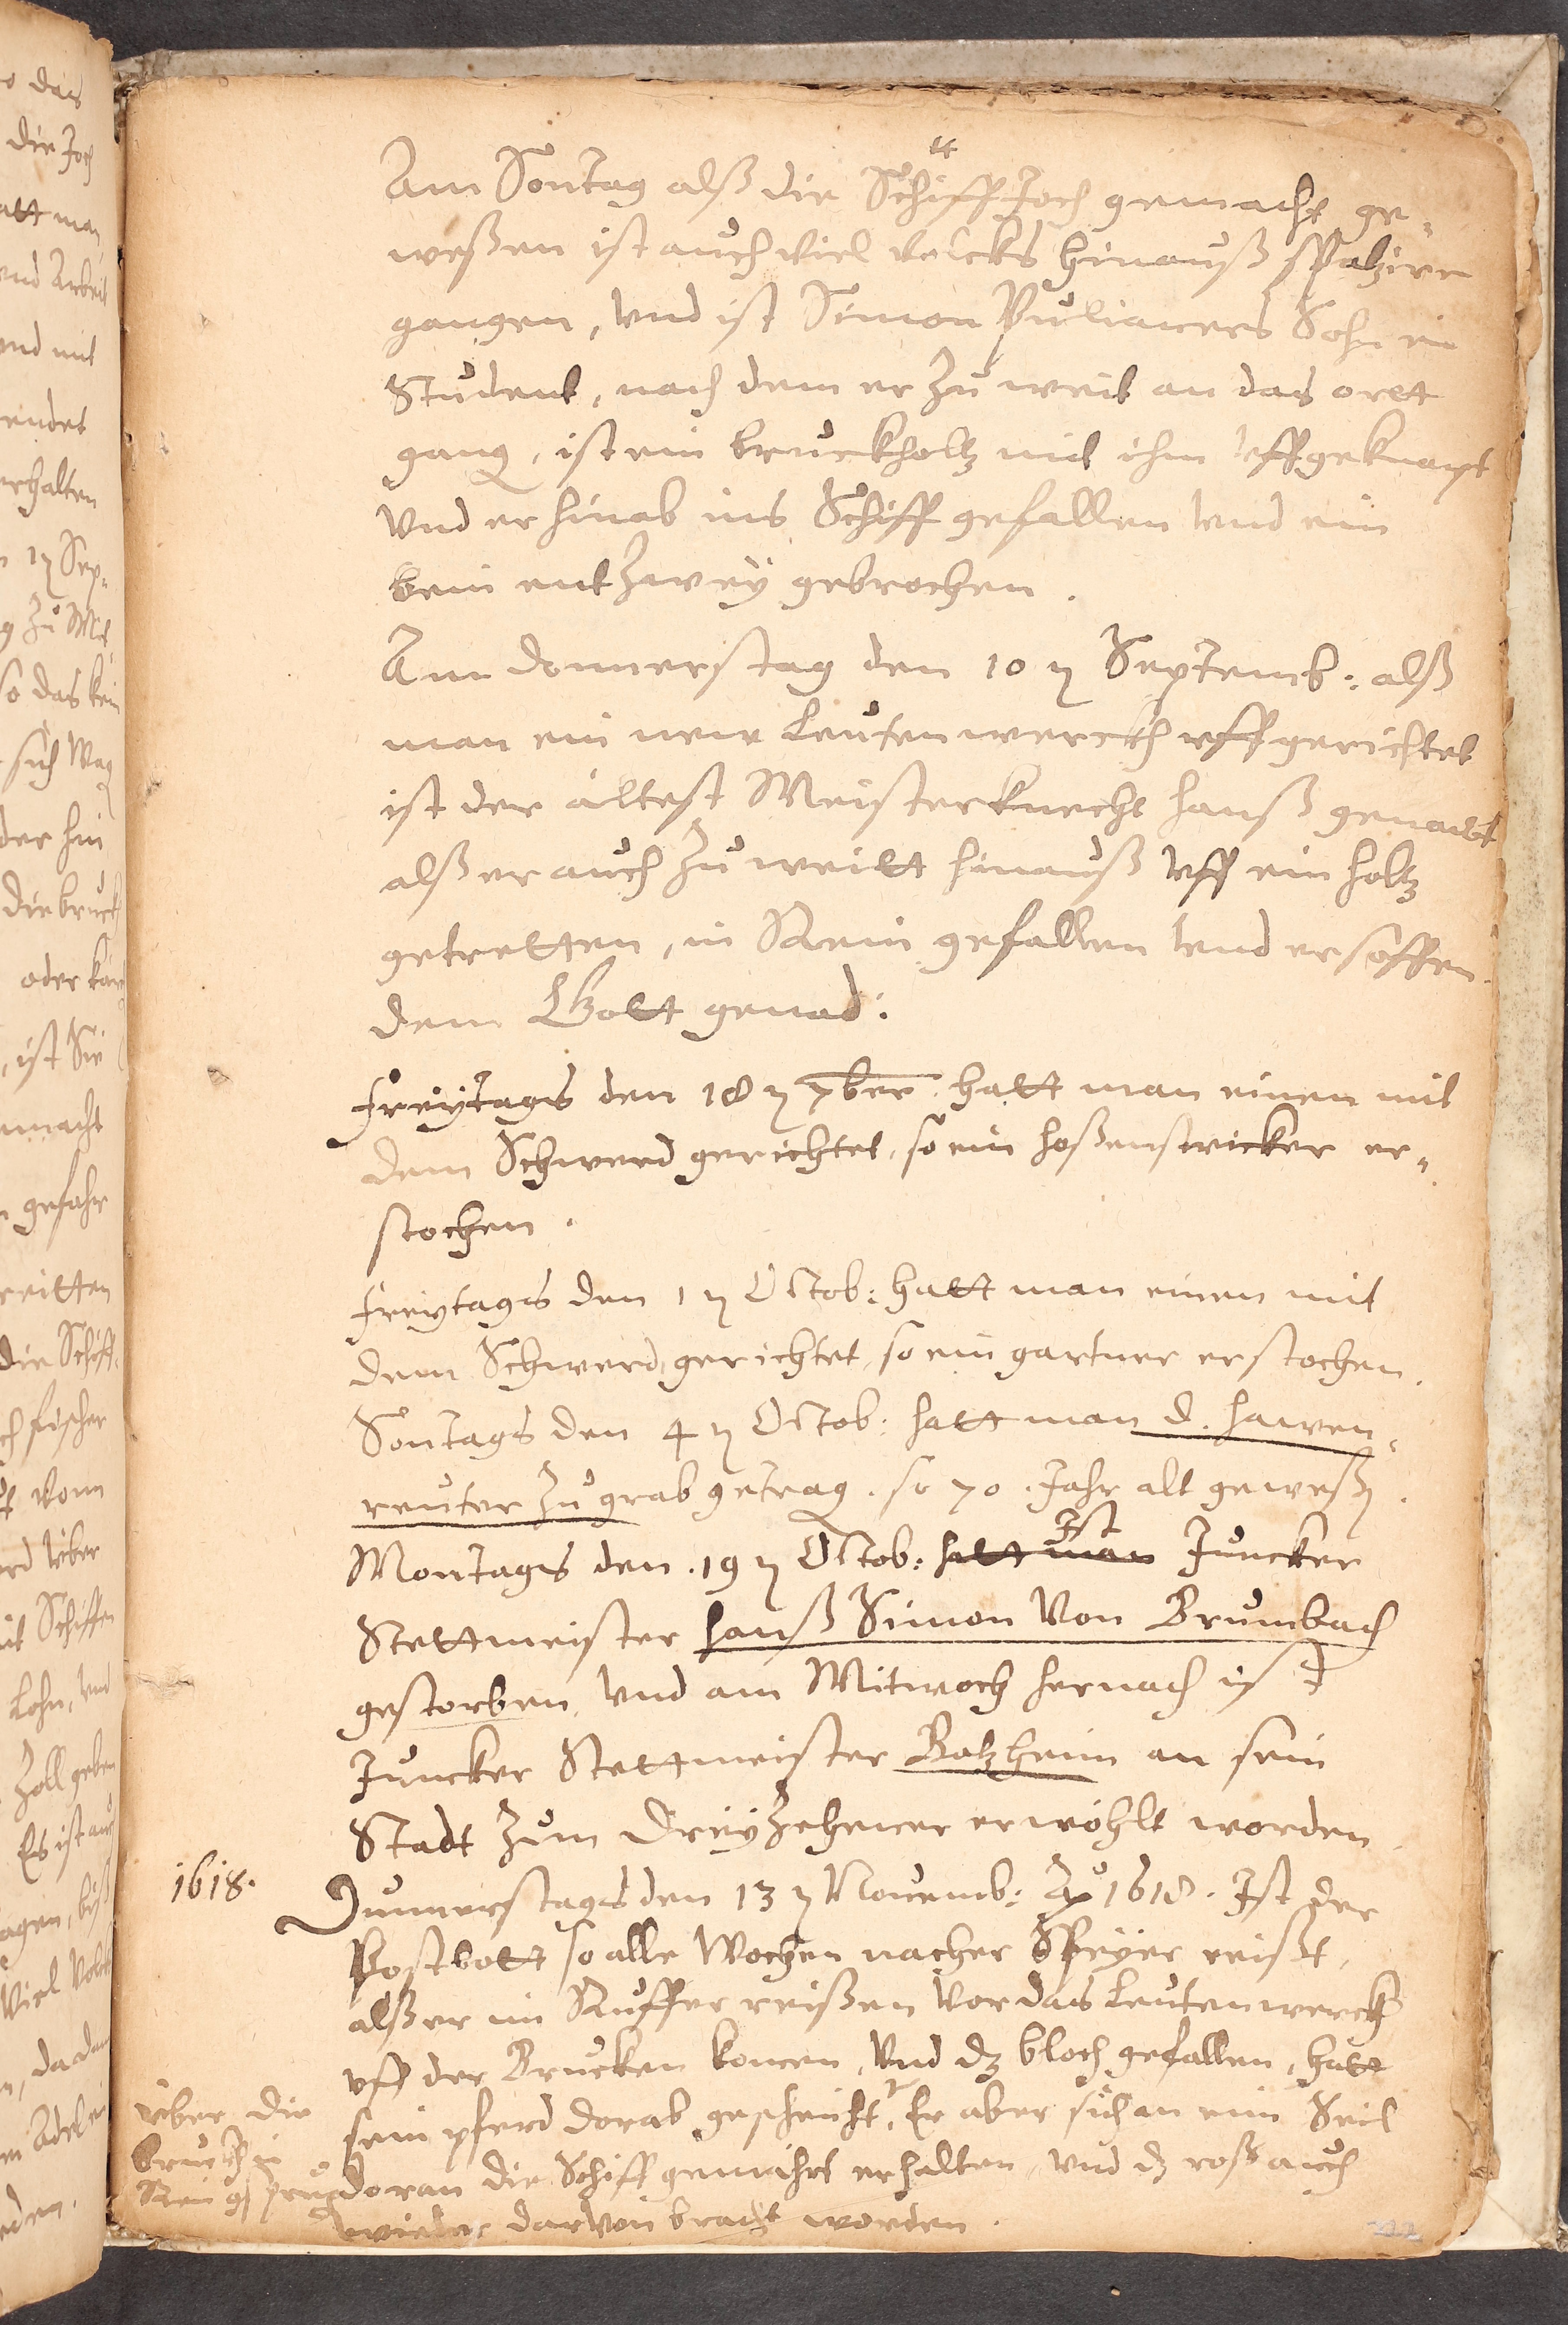 Am Sontag alß die Schiff Joch gemacht ge-
weßen ist auch viel volcks hinauß spaziren
gangen, vnd ist Simon Pulianers Sohn ein
Student, nach dem er zu weit an das ortt
gang, ist ein bruckholtz mit ihm vffgeknapt
vnd er hinab ins Schiff gefallen vnd ein
bein entzwey gebrochen.
Am donnerstag den 10 n Septemb: alß
man ein new Leutenwerckh vffgerichtet
ist der ältest Meisterknecht hanß genant
alß er auch zu weitt hinauß vff ein holtz
getretten, in Rein gefallen vnd ersoffen.
dem Gott genad:
Freytags den 18 n 7ber. hatt man einen mit
dem Schwerd gerichtet, so ein hoßenstricker er-
stochen.
Freytags den 1 n Octob: hatt man einen mit
dem Schwerd gerichtet, so ein gartner erstochen.
Sontags den 4 n Octob: hatt man d. hawen-
reuter zu grab getrag. so 70. Jahr alt geweßn.
Montags den. 19 n Octob: hatt man Ist Juncker
Stettmeister hanß Simon von Brumbach
gestorben, vnd am Mitwoch hernach ist
Juncker Stettmeister Botzheim an sein
Stadt zum Dreyzehener erwöhlt worden.
1618.
Dunnerstags den 13 n Novemb: Ao 1618. Ist der
Postbott so alle Wochen nacher Speyer reißt,
alß er im Nuffer reißen vor das Leutenwerck
vff der Brucken komen, vnd dz bloch gefallen, hatt
sein pferd dorab gescheücht, Er aber sich an ein Seil
doran die Schiff gemacht erhalten, vnd dz roß auch
wieder darvon bracht worden.
über die
bruckh in
Rein